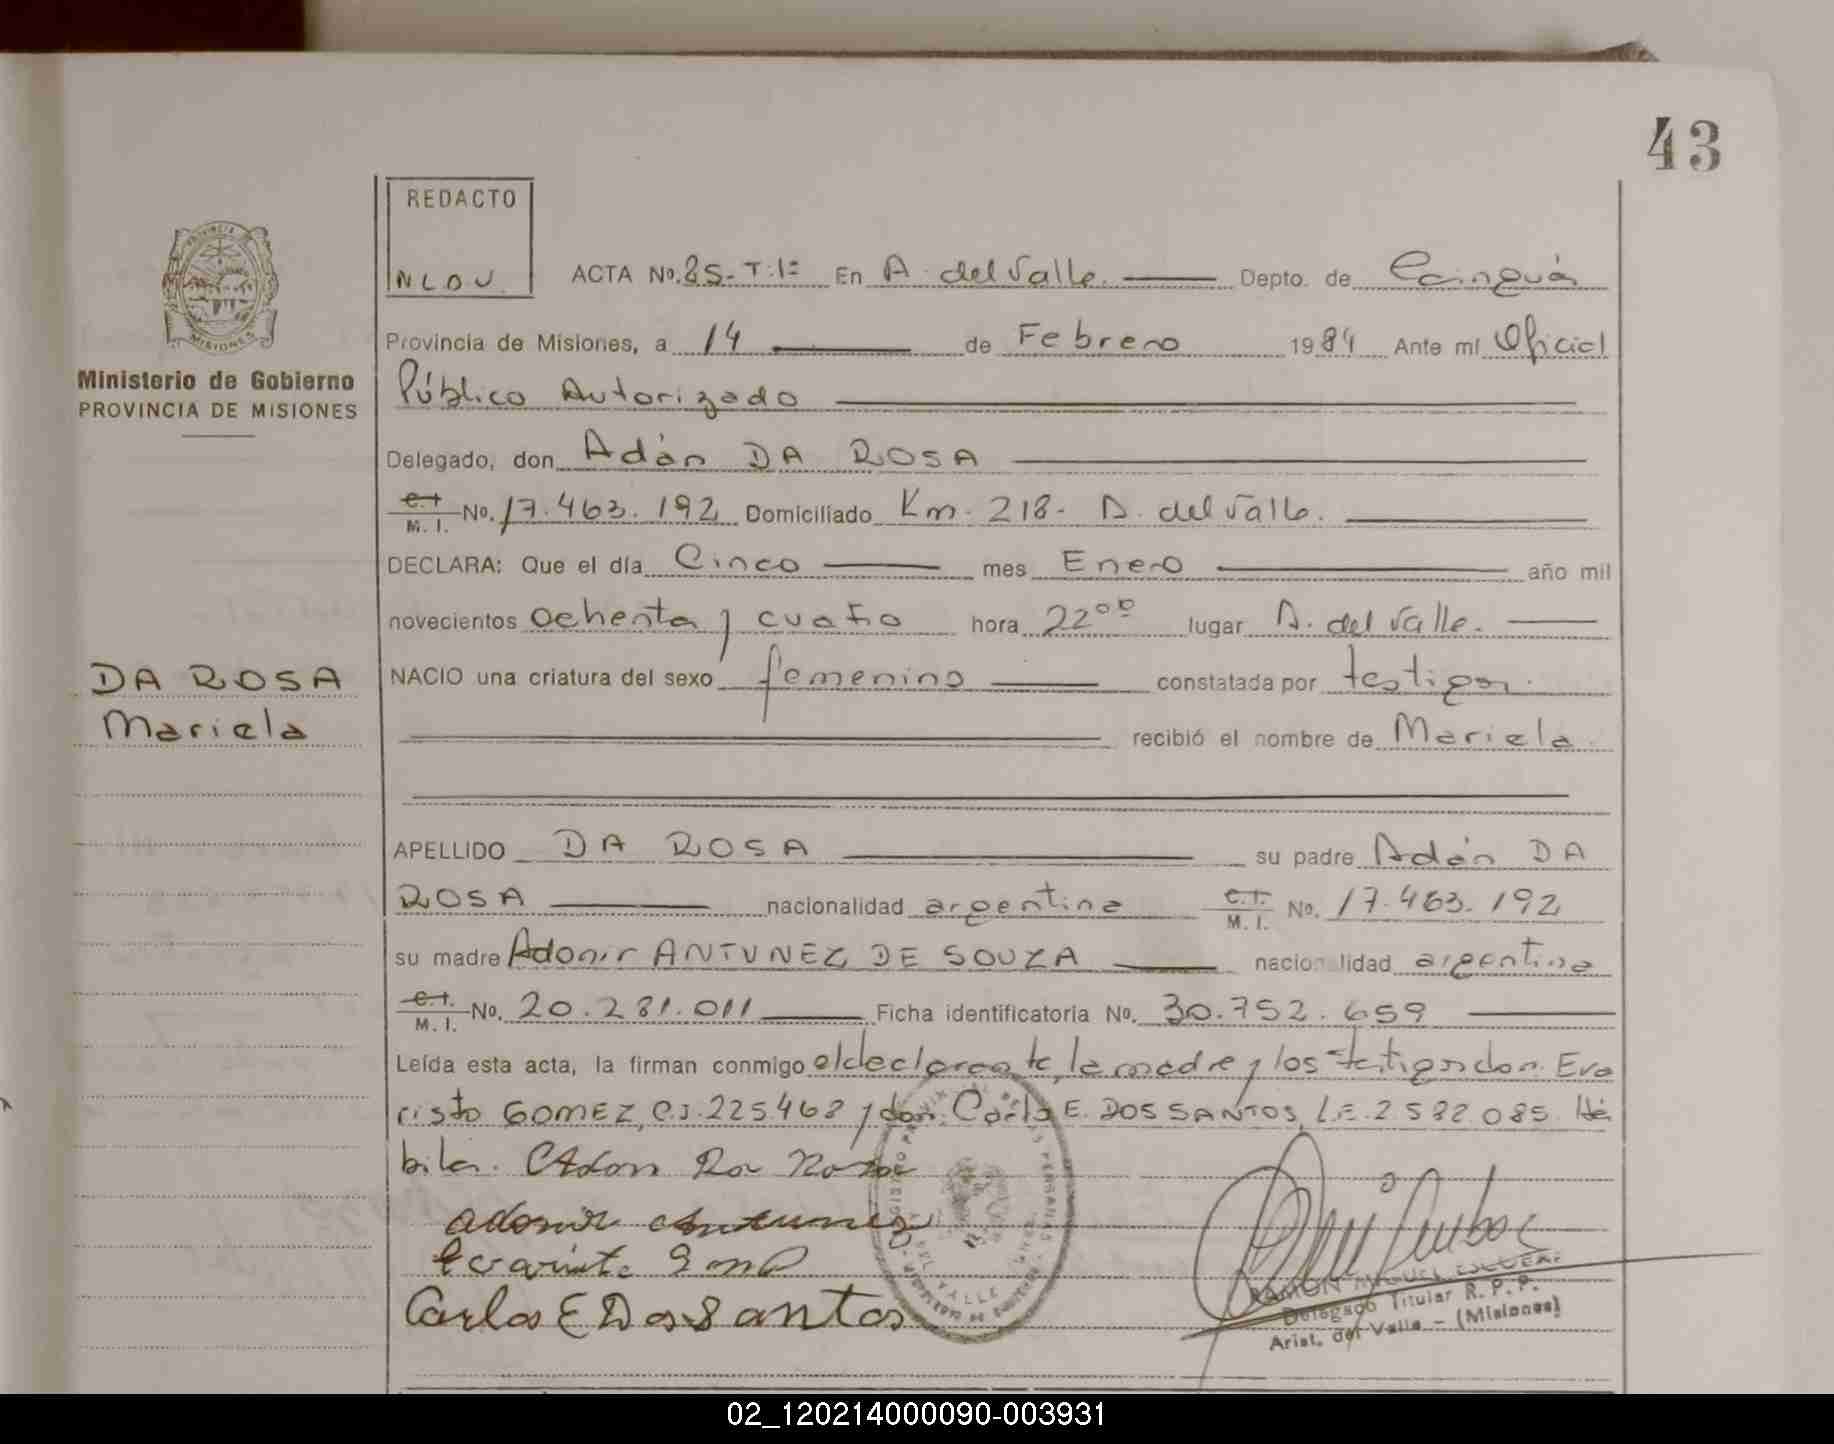 43
REDACTO
N L D V.
PROVINCIA
MISIONES
Ministerio de Gobierno
PROVINCIA DE MISIONES
ACTA No. 85- T:1º En A. del Valle. Depto. de Cainguás
Provincia de Misiones, a 14 de Febrero 1984 Ante mí Oficial
Público Autorizado
Delegado, don Adán DA ROSA
C.I. M. I. No. 17.463.192 Domiciliado Km. 218- A. del Valle.
DECLARA: Que el día Cinco mes Enero año mil
novecientos ochenta y cuatro hora 22⁰⁰ lugar A. del Valle.
NACIO una criatura del sexo femenino constatada por testigos.
DA ROSA
Mariela
recibió el nombre de Mariela.
APELLIDO DA ROSA su padre Adán DA
ROSA nacionalidad argentina C.I. M. I. No. 17.463.192
su madre Adonir ANTUNEZ DE SOUZA nacionalidad argentina
C.I. M. I. No. 20.281.011 Ficha identificatoria No. 30.752.659
Leída esta acta, la firman conmigo el declarante, la madre y los testigos don Eva
risto GOMEZ, C.I. 225.468 y don Carlo E. DOS SANTOS, L.E. 2.582.085. Há
biles. Adan Da Rosa
adonir antunez
Carlos E Dos Santos
RAMON MIGUEL
Delegado Titular R. P. P.
Arist. del Valle - (Misiones)
02_120214000090-003931